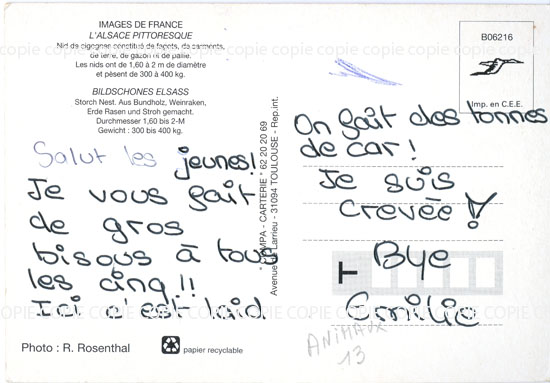 IMAGES DE FRANCE
L'ALSACE PITTORESQUE
Nid de cigognes constitué de fagots, de sarments,
de terre, de gazon ni de paille.
Les nids ont de 1,60 à 2 m de diamètre
et pèsent de 300 à 400 kg.
BILDSCHONES ELSASS
Storch Nest. Aus Bundholz, Weinraken,
Erde Rasen und Stroh gemacht.
Durchmesser 1,60 bis 2-M
Gewicht : 300 bis 400 kg.
Salut les jeunes!
Je vous fait
de gros
bisous à tous
les cinq !!
Ici c'est laid
Photo : R. Rosenthal
papier recyclable
* COMPA - CARTERIE * 62 20 20 69
Avenue de Larrieu - 31094 TOULOUSE - Rep.int.
B06216
Imp. en C.E.E.
On fait des tonnes
de car !
Je suis
crevée !
Bye
Emilie
ANIMAUX
13
copie copie copie copie copie copie copie copie copie
COPIE COPIE COPIE COPIE COPIE COPIE COPIE COPIE COPIE